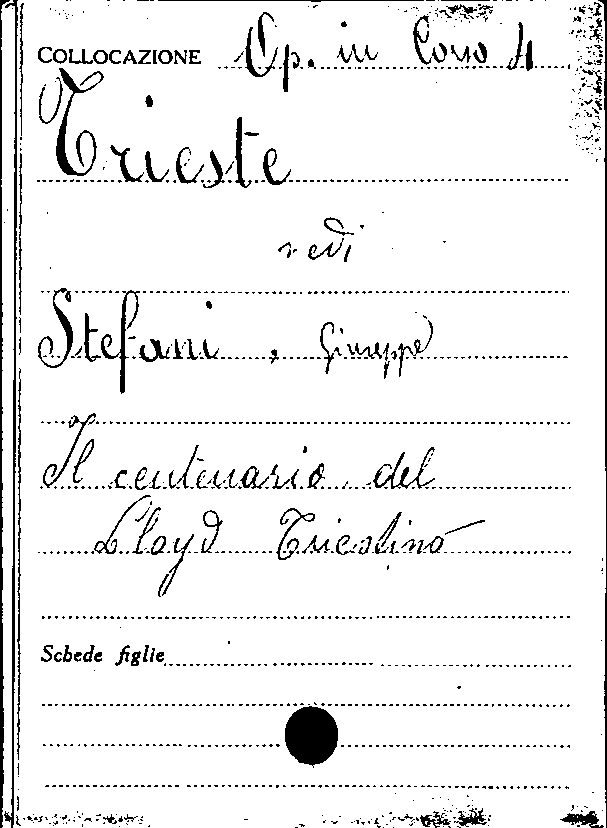 COLLOCAZIONE Op. in Corso 4
Trieste
vedi
Stefani, Giuseppe
Il centenario del
Lloyd Triestino
Schede figlie